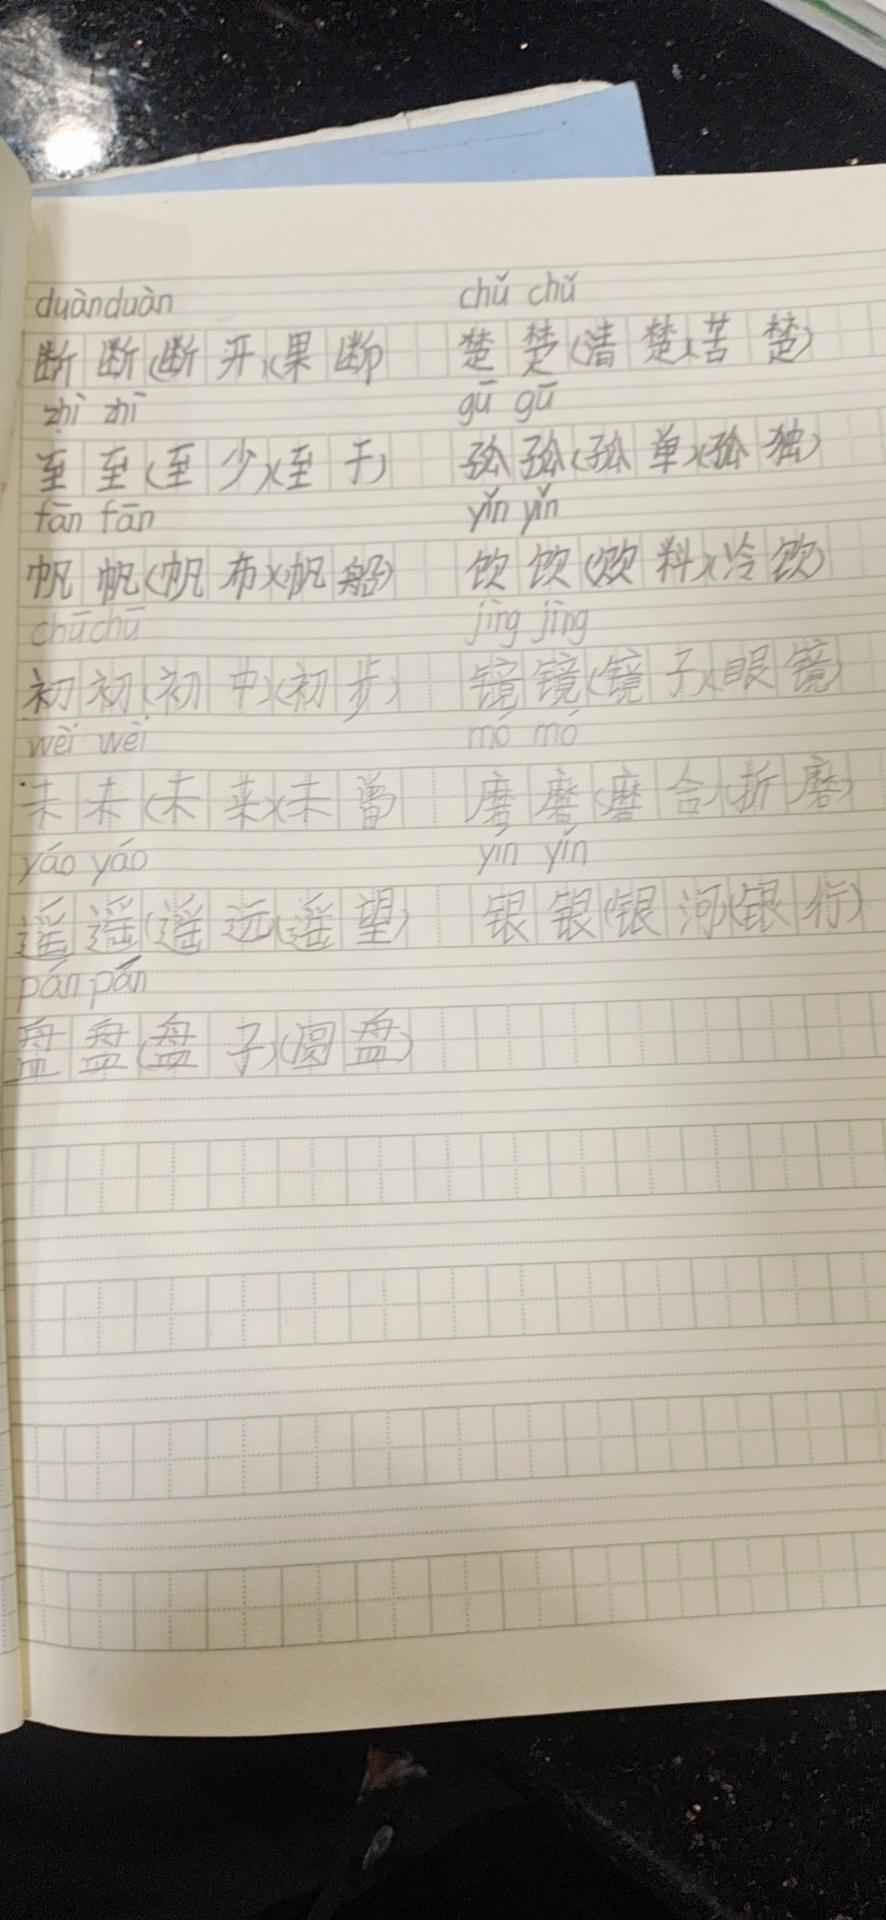 duànduàn chǔ chǔ
断断(断开)(果断) 楚楚(清楚)(苦楚)
zhì zhì gū gū
至至(至少)(至于) 孤孤(孤单)(孤独)
fān fān yǐn yǐn
帆帆(帆布)(帆船) 饮饮(饮料)(冷饮)
chūchū jìng jìng
初初(初中)(初步) 镜镜(镜子)(眼镜)
wèi wèi mó mó
未未(未来)(未曾) 磨磨(磨合)(折磨)
yáo yáo yín yín
遥遥(遥远)(遥望) 银银(银河)(银行)
pán pán
盘盘(盘子)(圆盘)